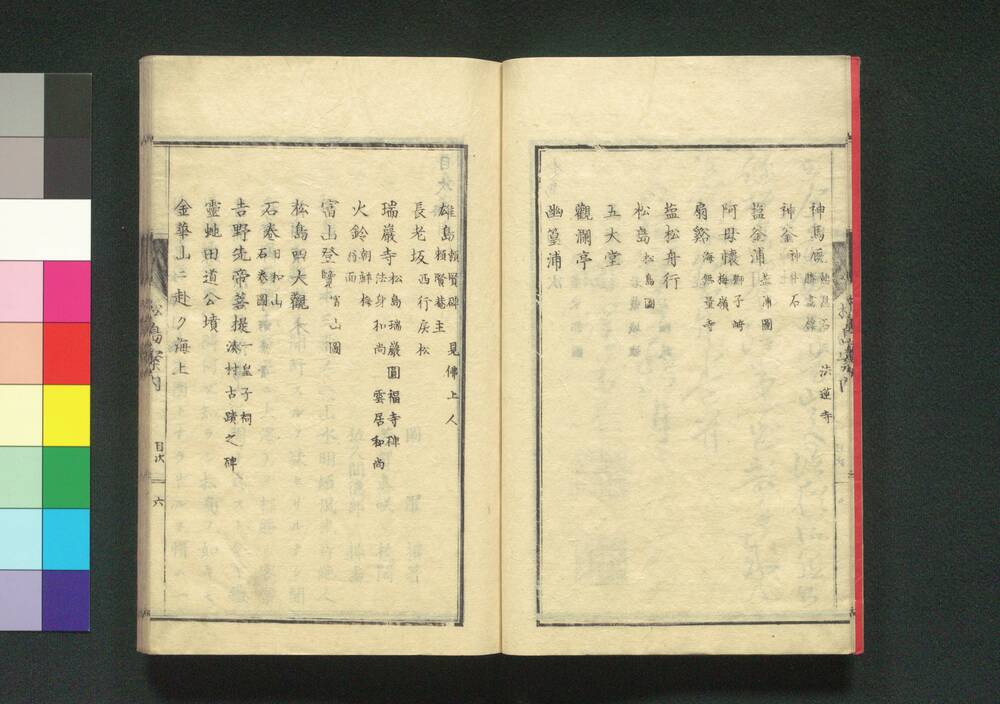 神馬廐 法蓮寺
神釜 神牛石
塩釜浦 塩浦圖
阿母懐 獅子崎 梅嶺
扇谿 海無量寺
塩松舟行
松島 松島圖
五大堂
觀瀾亭
幽篁浦
雄島 頼賢碑 見佛上人 頼賢菴主
長老坂 西行戻松
瑞巖寺 松島瑞巖圓福寺碑 法身和尚 雲居和尚
火鈴 朝鮮梅
富山登覽 富山圖
松島四大觀
石巻 日和山 石巻圖
吉野先帝菩提 一皇子祠 湊村古蹟之碑
靈虵田道公墳
金華山ニ赴ク海上
松島案内
目次
六